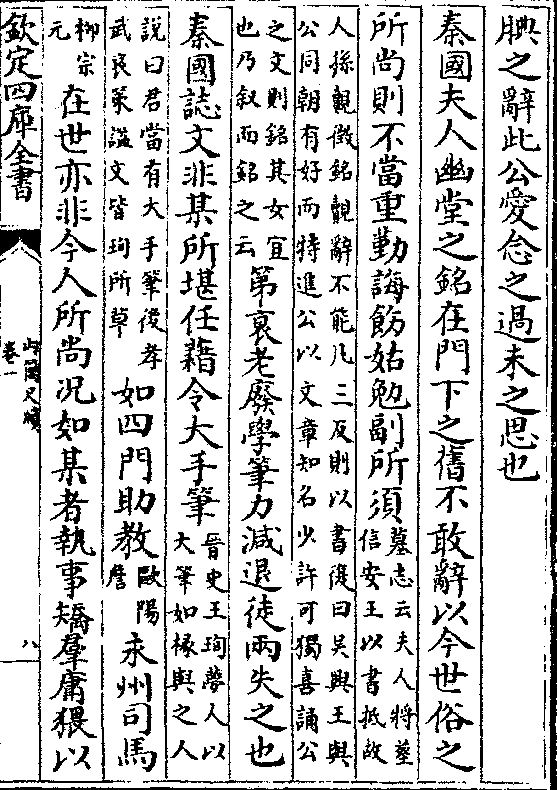 腆之辭此公愛念之過未之思也
秦國夫人幽堂之銘在門下之舊不敢辭以今世俗之
所尚則不當重勤誨飭姑勉副所須墓志云夫人將葬
信安王以書抵故
人孫覿徵銘覿辭不能凡三反則以書復曰吳興王與
公同朝有好而特進公以文章知名少許可獨喜誦公
之文則銘其女宜
也乃叙而銘之云第衰老廢學筆力減退徒兩失之也
秦國誌文非某所堪任藉令大手筆晉史王珣夢人以
大筆如椽與之人
說曰君當有大手筆後孝
武哀策諡文皆珣所草如四門助教歐陽
詹永州司馬
柳宗
元在世亦非今人所尚况如某者執事矯羣庸猥以
欽定四庫全書
卷一
八